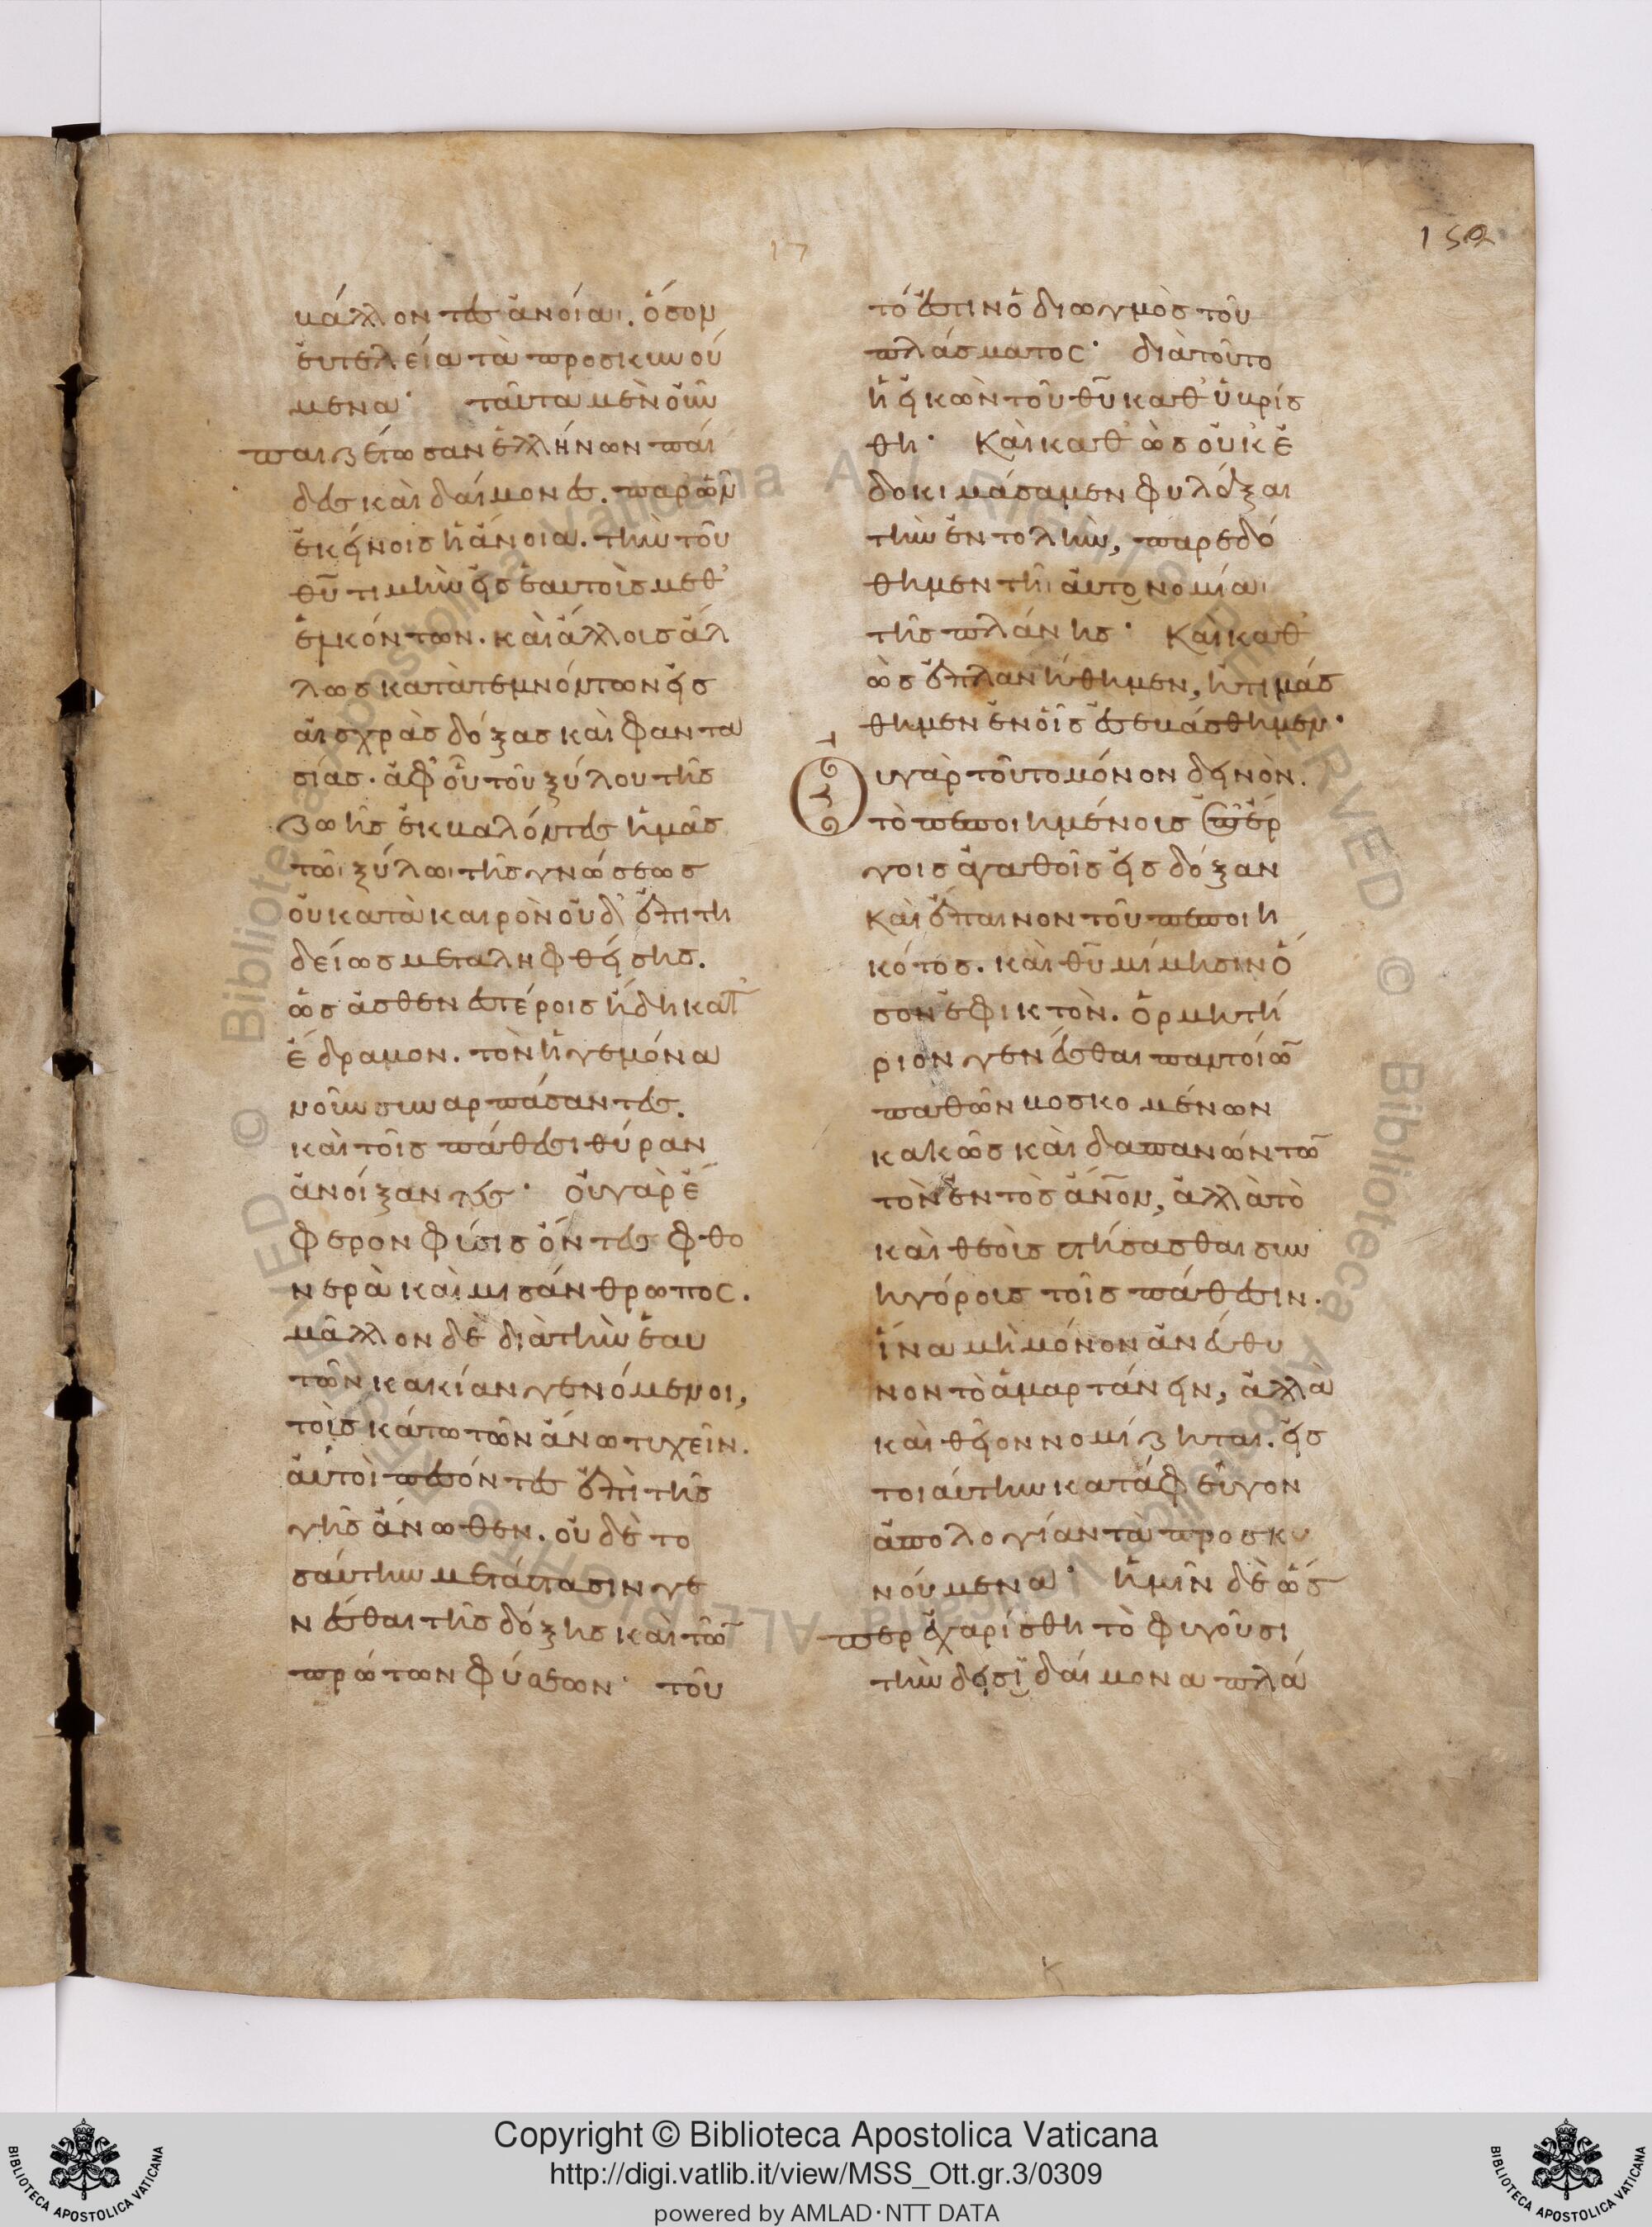 152
17
μάλλον τῆς ἀνοίας. ὅσον
εὐτελεία τὰ προσκυνού
μενα· ταῦτα μὲν οὖν
παιζέτωσαν ἑλλήνων παῖ
δες καὶ δαίμονες. παρ' ὧν
ἐκείνοις ἡ ἄνοια. τὴν τοῦ
θῦ τιμὴν εἰς ἑαυτοὺς μεθ'
ἑλκόντων. καὶ ἄλλοις ἄλ
λως κατατεμνόντων εἰς
αἰσχρὰς δόξας καὶ φαντα
σίας. ἀφ' οὗ τοῦ ξύλου τῆς
ζωῆς ἐκβαλόντες ἡμᾶς
τῶι ξύλωι τῆς γνώσεως
οὐ κατὰ καιρὸν οὐδ' ἐπιτη
δείως μεταληφθείσης.
ὡς ἀσθενεστέροις ἤδη κατ
έδραμον. τὸν ἡγεμόνα
νοῦν συναρπάσαντες.
καὶ τοῖς πάθεσι θύραν
ἀνοίξαντες· οὐ γὰρ ἔ
φερον φύσις ὄντες φθο
νερὰ καὶ μισάνθρωπος.
μᾶλλον δὲ διὰ τὴν ἑαυ
τῶν κακίαν γενόμενοι,
τοὺς κάτω τῶν ἄνω τυχεῖν.
αὐτοὶ πεσόντες ἐπὶ τῆς
γῆς ἄνωθεν. οὐδὲ το
σαύτην μετάστασιν γε
νέσθαι τῆς δόξης καὶ τῶ
πρώτων φύσεων· τοῦ
τό ἐστιν ὁ διωγμὸς τοῦ
πλάσματος· διὰ τοῦτο
ἡ εἰκὼν τοῦ θῦ καθυβρίσ
θη· Καὶ καθ' ὡς οὐκ ἐ
δοκιμάσαμεν φυλάξαι
τὴν ἐντολὴν, παρεδό
θημεν τῆι αὐτονομίαι
τῆς πλάνης· Καὶ καθ'
ὡς ἐπλανήθημεν, ἠτιμάσ
θημεν ἐν οἷς ἐσεβάσθημεν·
Οὐ γὰρ τοῦτο μόνον δεινὸν.
τὸ πεποιημένοις ἐπ' ἔρ
γοις ἀγαθοῖς εἰς δόξαν
καὶ ἔπαινον τοῦ πεποιη
κότος. καὶ θῦ μίμησιν ὅ
σον ἐφικτὸν. ὁρμητή
ριον γενέσθαι παντοίω
παθῶν βοσκομένων
κακῶς καὶ δαπανώντω
τὸν ἐντὸς ἄνον, ἀλλὰ τὸ
καὶ θεοὺς στήσασθαι συν
ηγόρους τοῖς πάθεσιν.
ἵνα μὴ μόνον ἀνεύθυ
νον τὸ ἁμαρτάνειν, ἀλλὰ
καὶ θεῖον νομίζηται. εἰς
τοιαύτην καταφεῦγον
ἀπολογίαν τὰ προσκυ
νούμενα· ἡμῖν δὲ ὥσ
περ ἐχαρίσθη τὸ φυγοῦσι
τὴν δεισιδαίμονα πλά
Copyright © Biblioteca Apostolica Vaticana
http://digi.vatlib.it/view/MSS_Ott.gr.3/0309
powered by AMLAD·NTT DATA
BIBLIOTECA APOSTOLICA VATICANA
BIBLIOTECA APOSTOLICA VATICANA